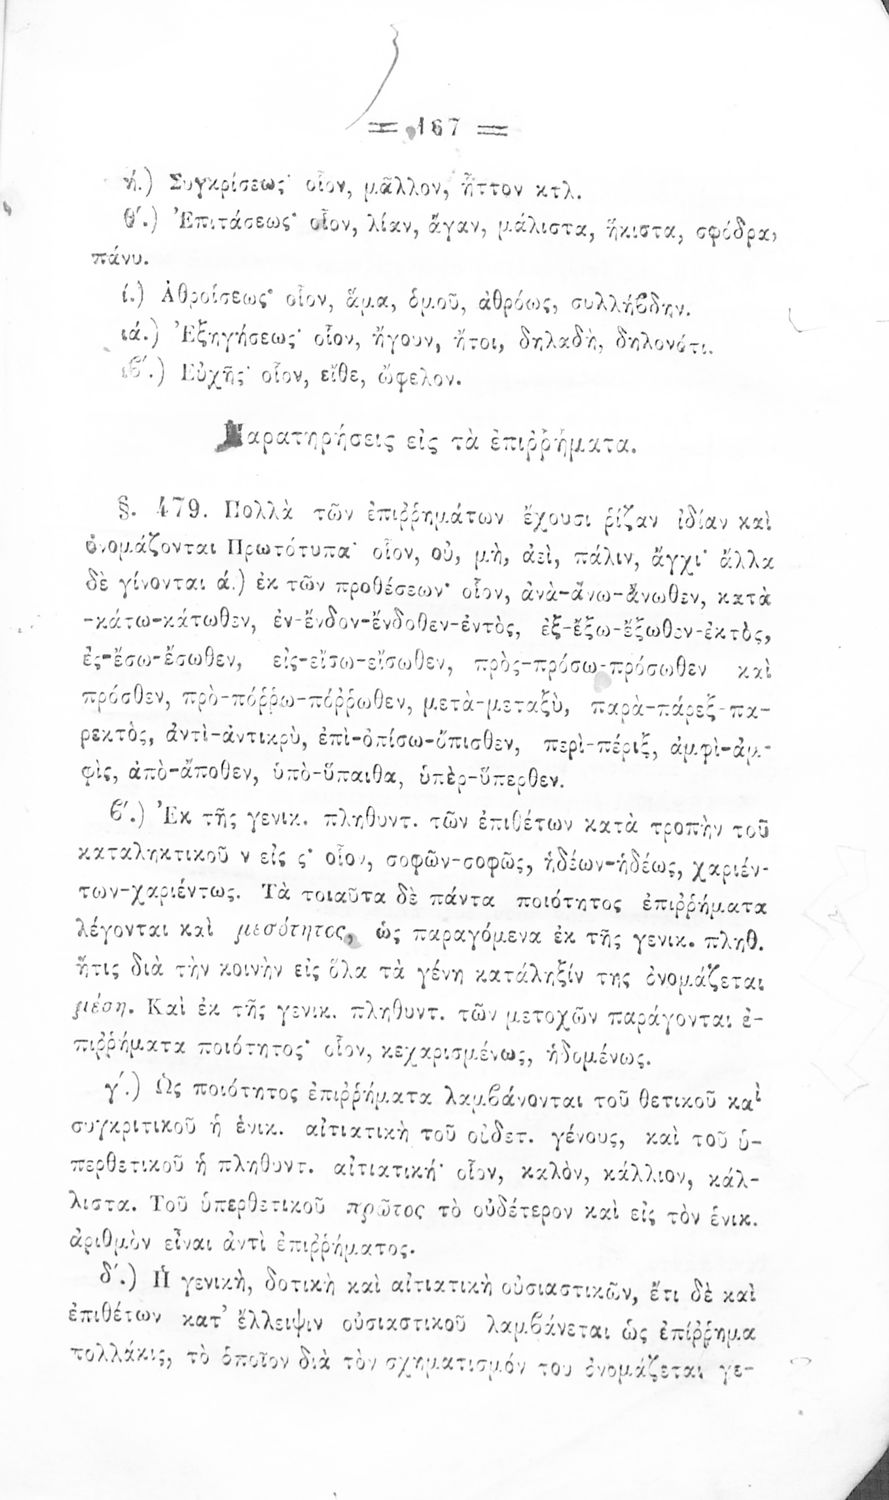 = 167 =
ή.) Συγκρίσεως· οἷον, μᾶλλον, ἧττον κτλ.
θ΄.) Ἐπιτάσεως· οἷον, λίαν, ἄγαν, μάλιστα, ἥκιστα, σφόδρα,
πάνυ.
ί.) Ἀθροίσεως· οἷον, ἅμα, ὁμοῦ, ἀθρόως, συλλήβδην.
ιά.) Ἐξηγήσεως· οἷον, ἤγουν, ἤτοι, δηλαδὴ, δηλονότι.
ιβ΄.) Εὐχῆς· οἷον, εἴθε, ὤφελον.
Παρατηρήσεις εἰς τὰ ἐπιῤῥήματα.
§. 479. Πολλὰ τῶν ἐπιῤῥημάτων ἔχουσι ῥίζαν ἰδίαν καὶ
ὀνομάζονται Πρωτότυπα· οἷον, οὐ, μὴ, ἀεὶ, πάλιν, ἄγχι· ἄλλα
δὲ γίνονται ά.) ἐκ τῶν προθέσεων· οἷον, ἀνὰ-ἄνω-ἄνωθεν, κατὰ
-κάτω-κάτωθεν, ἐν-ἔνδον-ἔνδοθεν-ἐντὸς, ἐξ-ἔξω-ἔξωθεν-ἐκτὸς,
ἐς-ἔσω-ἔσωθεν, εἰς-εἴσω-εἴσωθεν, πρὸς-πρόσω-πρόσωθεν καὶ
πρόσθεν, πρὸ-πόῤῥω-πόῤῥωθεν, μετὰ-μεταξὺ, παρὰ-πάρεξ-πα-
ρεκτὸς, ἀντὶ-ἀντικρὺ, ἐπὶ-ὀπίσω-ὄπισθεν, περὶ-πέριξ, ἀμφὶ-ἀμ-
φὶς, ἀπὸ-ἄποθεν, ὑπὸ-ὕπαιθα, ὑπὲρ-ὕπερθεν.
β΄.) Ἐκ τῆς γενικ. πληθυντ. τῶν ἐπιθέτων κατὰ τροπὴν τοῦ
καταληκτικοῦ ν εἰς ς· οἷον, σοφῶν-σοφῶς, ἡδέων-ἡδέως, χαριέν-
των-χαριέντως. Τὰ τοιαῦτα δὲ πάντα ποιότητος ἐπιῤῥήματα
λέγονται καὶ μεσότητος, ὡς παραγόμενα ἐκ τῆς γενικ. πληθ.
ἥτις διὰ τὴν κοινὴν εἰς ὅλα τὰ γένη κατάληξίν της ὀνομάζεται
μέση. Καὶ ἐκ τῆς γενικ. πληθυντ. τῶν μετοχῶν παράγονται ἐ-
πιῤῥήματα ποιότητος· οἷον, κεχαρισμένως, ἡδομένως.
γ΄.) Ὡς ποιότητος ἐπιῤῥήματα λαμβάνονται τοῦ θετικοῦ καὶ
συγκριτικοῦ ἡ ἑνικ. αἰτιατικὴ τοῦ οὐδετ. γένους, καὶ τοῦ ὑ-
περθετικοῦ ἡ πληθυντ. αἰτιατική· οἷον, καλὸν, κάλλιον, κάλ-
λιστα. Τοῦ ὑπερθετικοῦ πρῶτος τὸ οὐδέτερον καὶ εἰς τὸν ἑνικ.
ἀριθμὸν εἶναι ἀντὶ ἐπιῤῥήματος.
δ΄.) Ἡ γενικὴ, δοτικὴ καὶ αἰτιατικὴ οὐσιαστικῶν, ἔτι δὲ καὶ
ἐπιθέτων κατ' ἔλλειψιν οὐσιαστικοῦ λαμβάνεται ὡς ἐπίῤῥημα
πολλάκις, τὸ ὁποῖον διὰ τὸν σχηματισμόν του ὀνομάζεται γε-